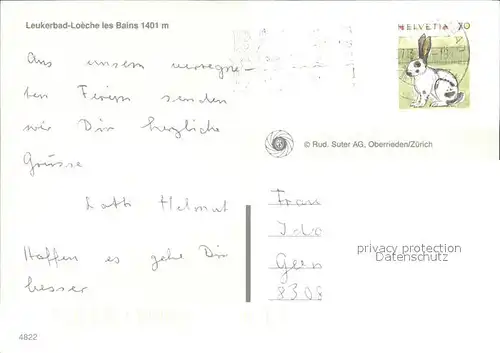 Leukerbad-Loèche les Bains 1401 m
HELVETIA 70
Aus unsern verregne-
ten Ferien senden
wir Dir herzliche
Grüsse
© Rud. Suter AG, Oberrieden/Zürich
Helmut
Hoffen es gehe Dir
besser
Frau
Ida
8308
privacy protection
Datenschutz
4822